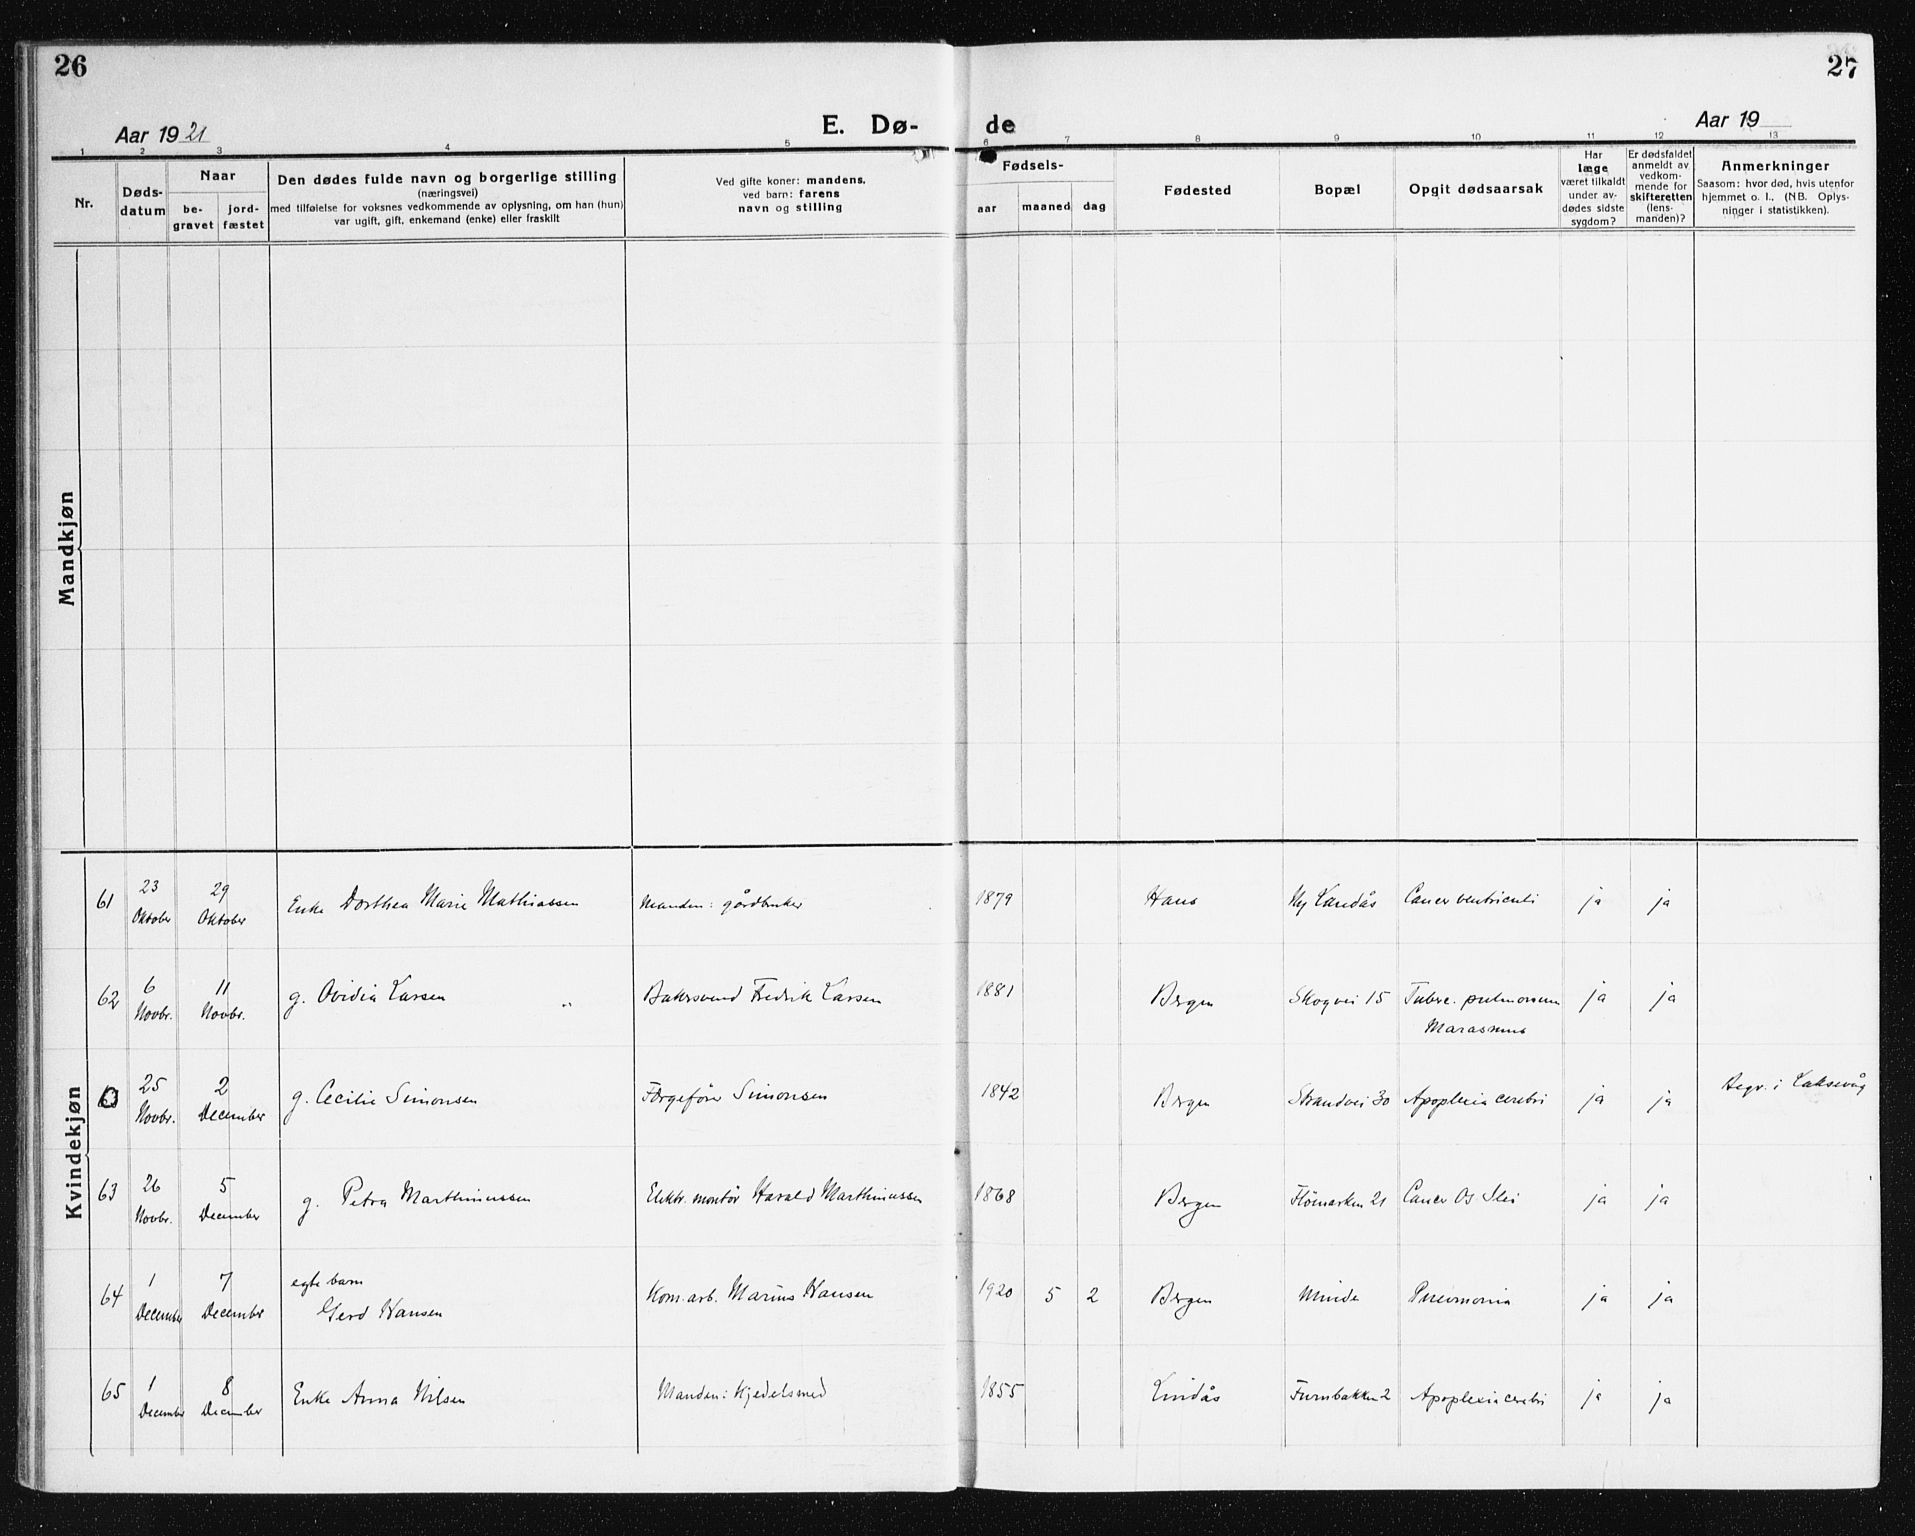 26
27
Aar 1921
E. Dø-
de
Aar 19
1 2 3 4 5 6 7 8 9 10 11 12 13
Nr.
Døds-
datum
Naar
be-
gravet
jord-
fæstet
Den dødes fulde navn og borgerlige stilling
(næringsvei)
med tilføielse for voksnes vedkommende av oplysning, om han (hun)
var ugift, gift, enkemand (enke) eller fraskilt
Ved gifte koner: mandens,
ved barn: farens
navn og stilling
Fødsels-
aar maaned dag
Fødested
Bopæl
Opgit dødsaarsak
Har
læge
været tilkaldt
under av-
dødes sidste
sygdom?
Er dødsfaldet
anmeldt av
vedkom-
mende for
skifteretten
(lens-
manden)?
Anmerkninger
Saasom: hvor død, hvis utenfor
hjemmet o. l., (NB. Oplys-
ninger i statistikken).
Mandkjøn
Kvindekjøn
61 23 Oktober 29 Oktober Enke Dorthea Marie Mathiassen Manden: gårdbruker 1879 Haus Ny Landås Cancer ventriculi ja ja
62 6 Novbr. 11 Novbr. g. Ovidia Larsen " Bakersvend Fredrik Larsen 1881 Bergen Skogvei 15 Tuberc. pulmonum ja ja
Marasmus
0 25 Novbr. 2 December g. Cecilie Simonsen Færgefører Simonsen 1842 Bergen Strandvei 30 Apoplexia cerebri ja ja Begr. i Laksevåg
63 26 Novbr. 5 December g. Petra Marthinussen Elektr. montør Harald Marthinussen 1868 Bergen Flömarken 21 Cancer Os Ilei ja ja
64 1 December 7 December egte barn
Gerd Hansen Kom. arb. Marius Hansen 1920 5 2 Bergen Minde Pneumonia ja ja
65 1 December 8 December Enke Anna Nilsen Manden: Kjedelsmed 1855 Lindås Furubakken 2 Apoplexia cerebri ja ja